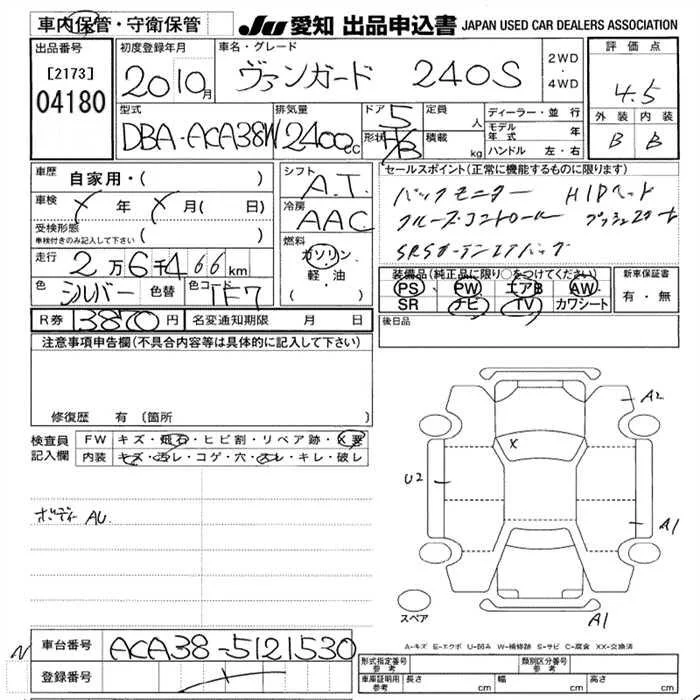 車内保管・守衛保管
JU 愛知 出品申込書 JAPAN USED CAR DEALERS ASSOCIATION
出品番号
[2173]
04180
初度登録年月
2010月
車名・グレード
ヴァンガード 240S
2WD
・
4WD
評価点
4.5
外装 内装
B B
型式
DBA-ACA38W
排気量
2400cc
ドア 5
形状 H/B
定員 人
積載 kg
ディーラー・並行
モデル年式 年
ハンドル 左・右
車歴
自家用・( )
車検 X 年 X 月( 日)
受検形態
車検付きのみ記入して下さい ( )
走行 2万6千466km
色 シルバー 色替 色コード 1F7
シフト
A.T.
冷房
AAC
燃料
ガソリン
・
軽・油
( )
セールスポイント(正常に機能するものに限ります)
バックモニター HIDヘッド
クルーズコントロール プッシュスタート
SRSカーテンエアバッグ
装備品(純正品に限り○をつけてください)
PS PW エアB AW
SR ナビ TV カワシート
新車保証書
有・無
R券 3870円 名変通知期限 月 日
後日品
注意事項申告欄(不具合内容等は具体的に記入して下さい)
修復歴 有(箇所
検査員記入欄
FW キズ・飛石・ヒビ割・リペア跡・X要
内装 キズ・汚レ・コゲ・穴・スレ・キレ・破レ
ボディ AU
X
A2
U2
A1
スペア
A1
A-キズ E-エクボ U-凹み W-補修跡 S-サビ C-腐食 XX-交換済
N
車台番号 ACA38-5121530
登録番号
形式指定番号 参考
類別区分番号 参考
車庫証明用 参考 長さ cm 幅 cm 高さ cm